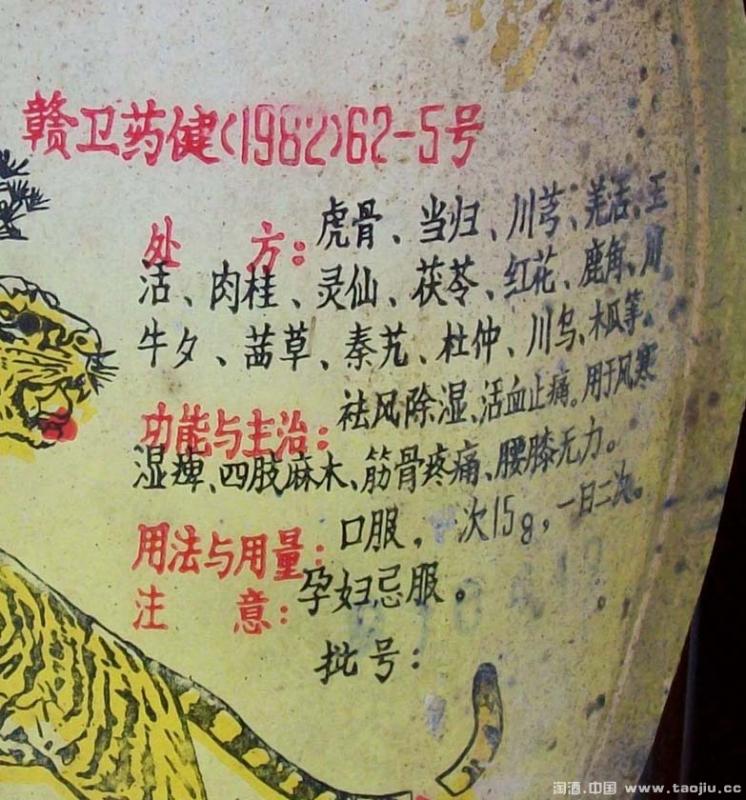 赣卫药健(1982)62-5号
处 方:虎骨、当归、川芎、羌活、玉
活、肉桂、灵仙、茯苓、红花、鹿角、川
牛夕、茜草、秦艽、杜仲、川乌、木瓜等。
功能与主治:祛风除湿、活血止痛。用于风寒
湿痹、四肢麻木、筋骨疼痛、腰膝无力。
用法与用量:口服,一次15g,一日二次。
注 意:孕妇忌服。
批号:
淘酒.中国 www.taojiu.cc